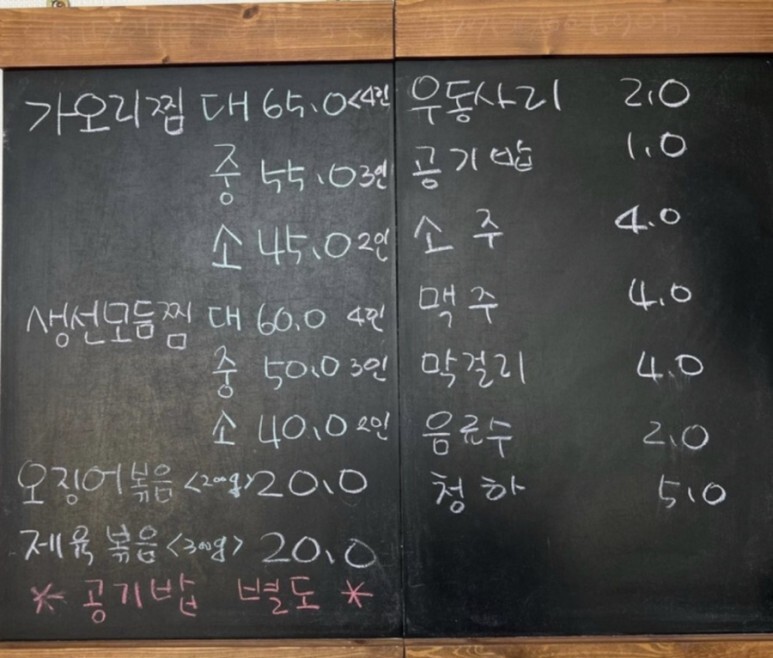 가오리찜 대 65.0 <4인
중 55.0 3인
소 45.0 2인
생선모듬찜 대 60.0 4인
중 50.0 3인
소 40.0 2인
오징어볶음 <200g> 20.0
제육볶음 <300g> 20.0
* 공기밥 별도 *
우동사리 2.0
공기밥 1.0
소주 4.0
맥주 4.0
막걸리 4.0
음료수 2.0
청하 5.0